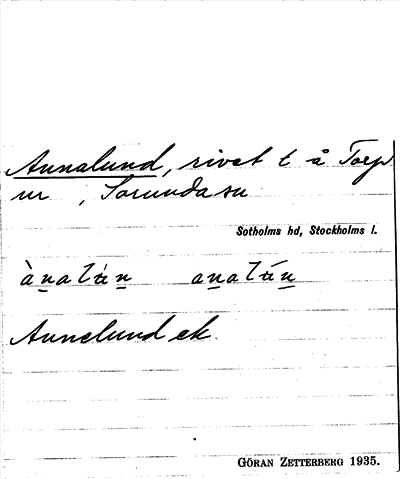 Annalund, rivet t å Torp
ur , Sorunda sn
Sotholms hd, Stockholms l.
Annelund ek
GÖRAN ZETTERBERG 1935.